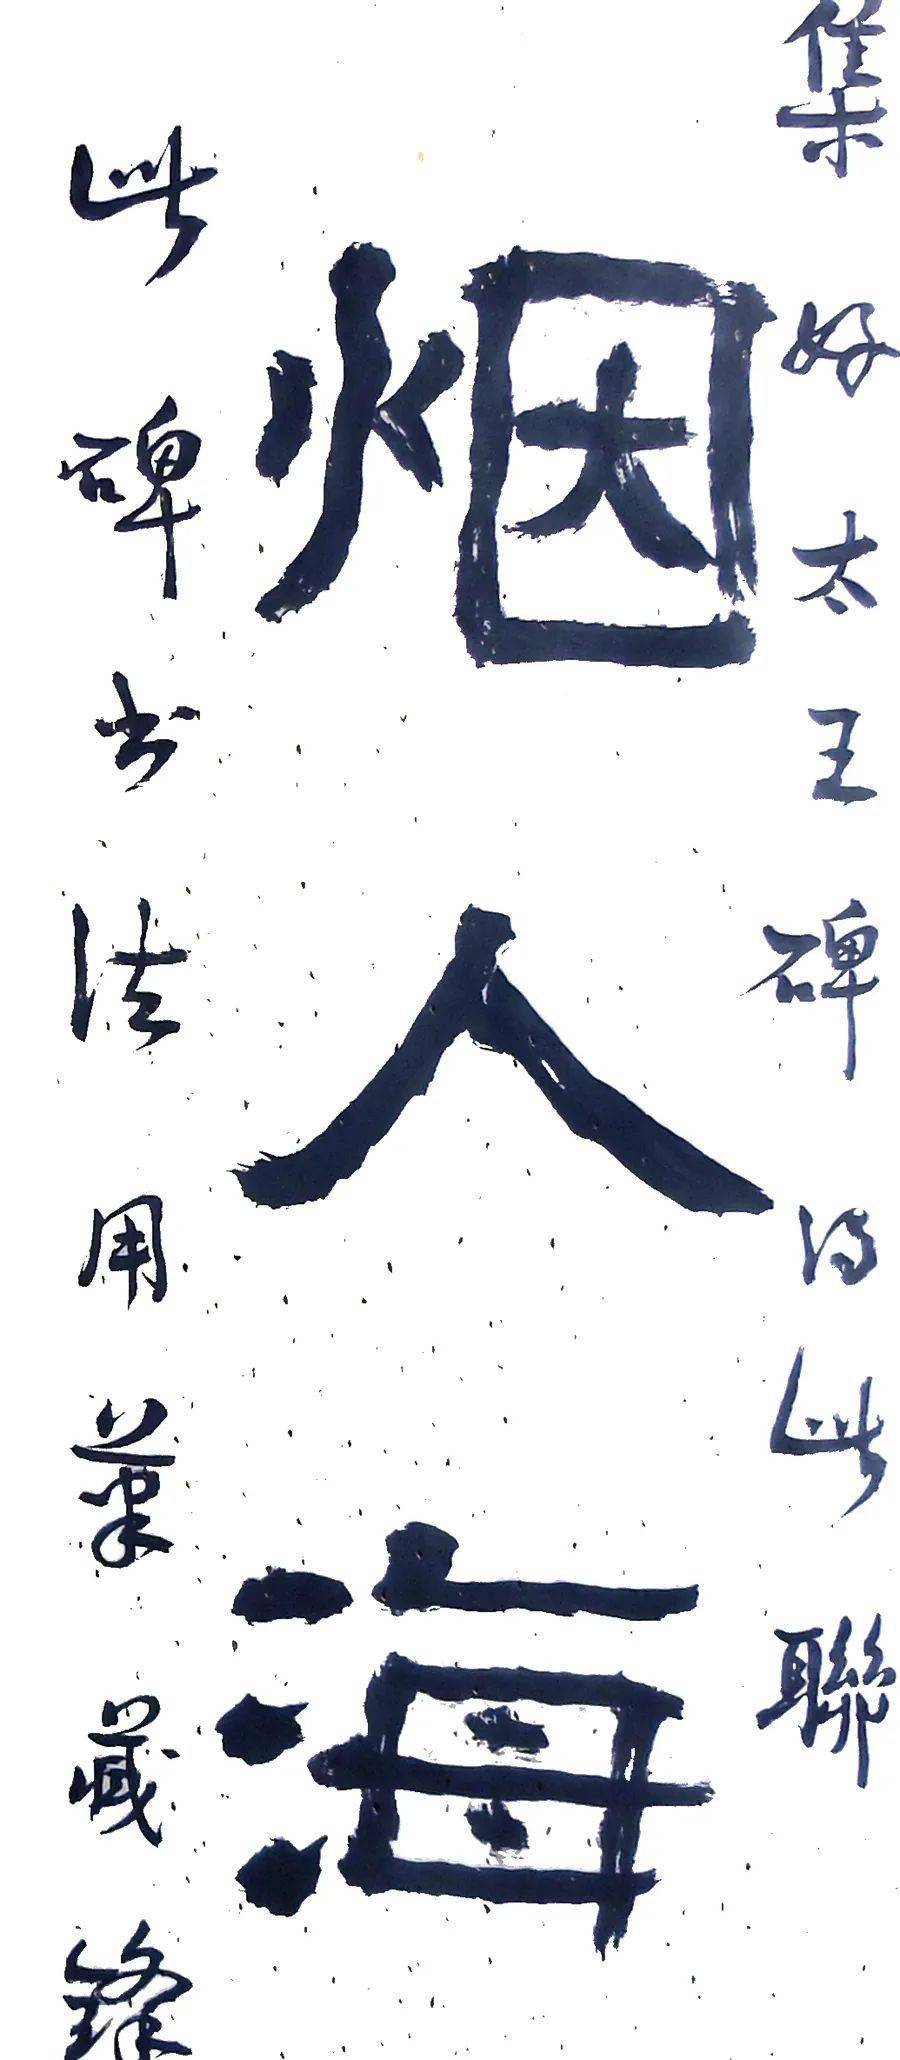 集好太王碑得此聯
烟人海
此碑书法用筆藏鋒